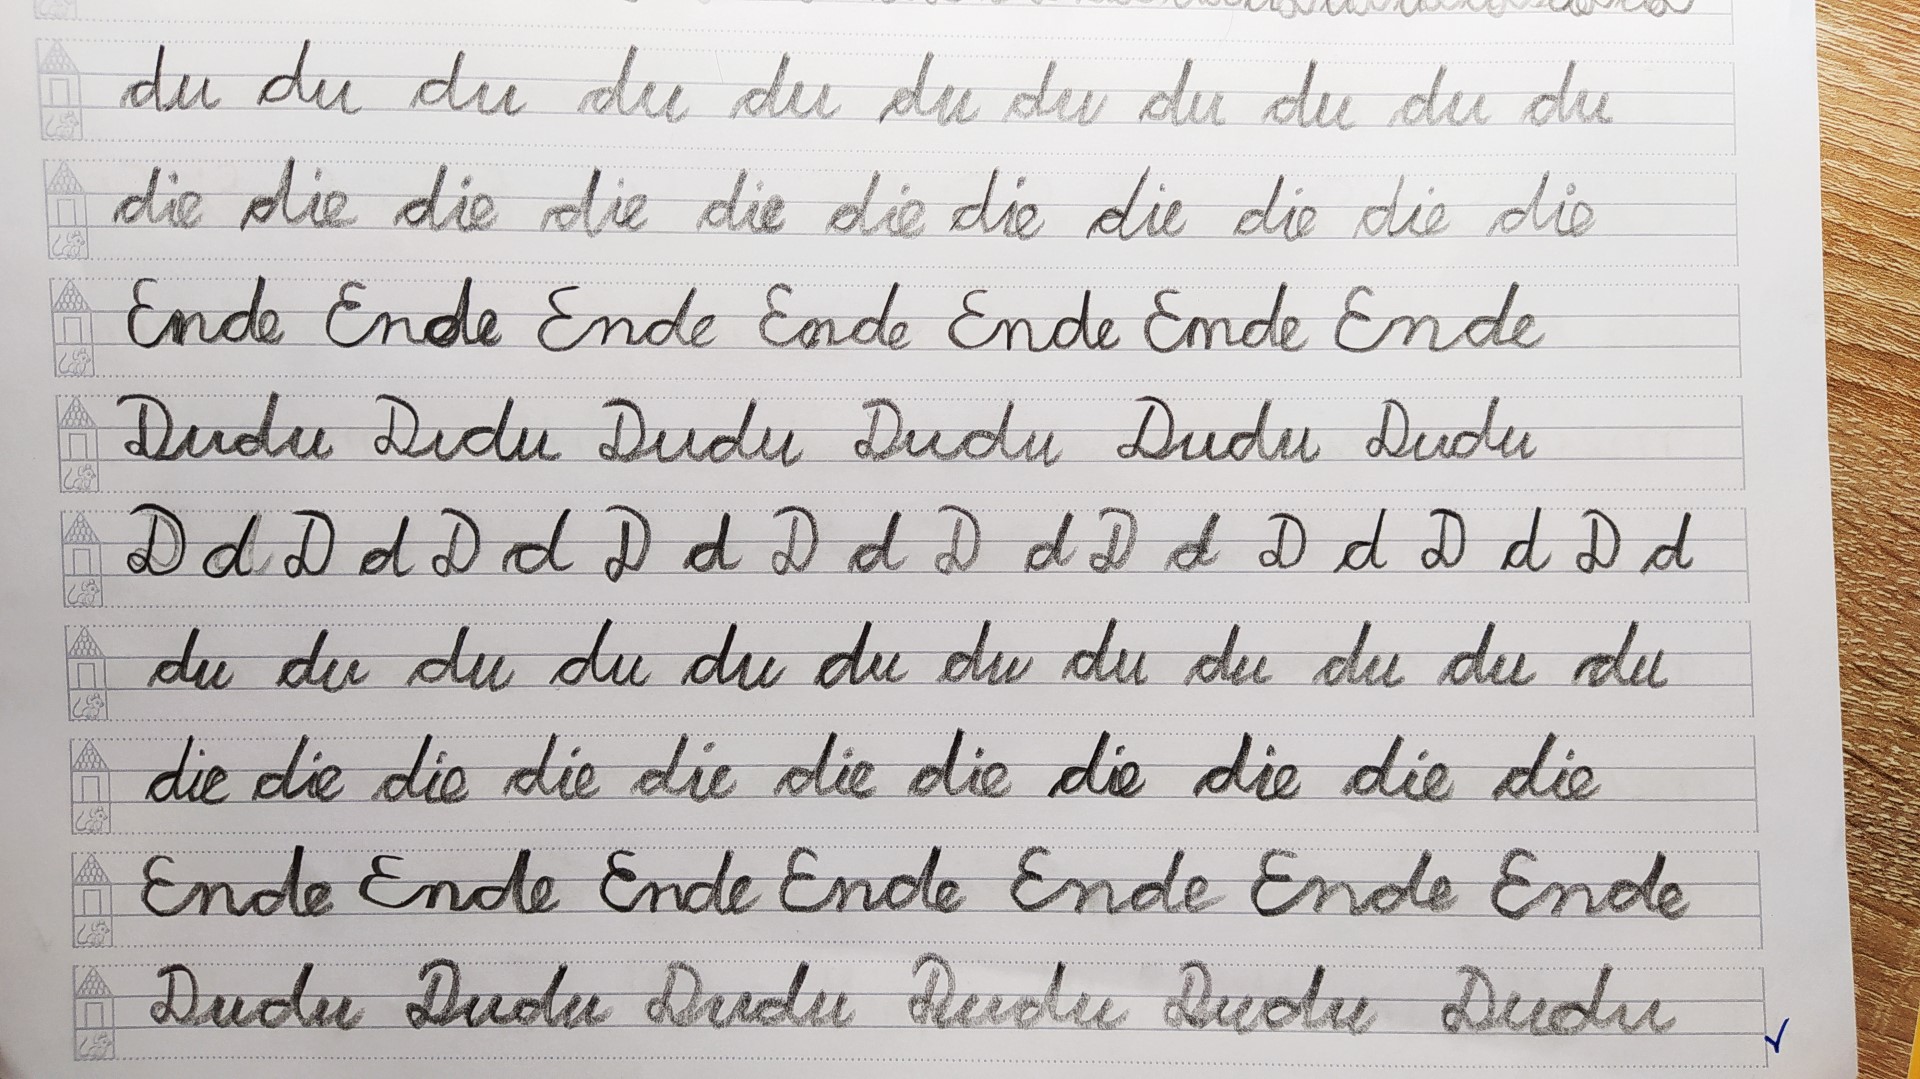 du du du du du du du du du du du
die die die die die die die die die die die
Ende Ende Ende Ende Ende Ende Ende
Dudu Dudu Dudu Dudu Dudu Dudu
D d D d D d D d D d D d D d D d D d D d
du du du du du du du du du du du du
die die die die die die die die die die die
Ende Ende Ende Ende Ende Ende Ende
Dudu Dudu Dudu Dudu Dudu Dudu